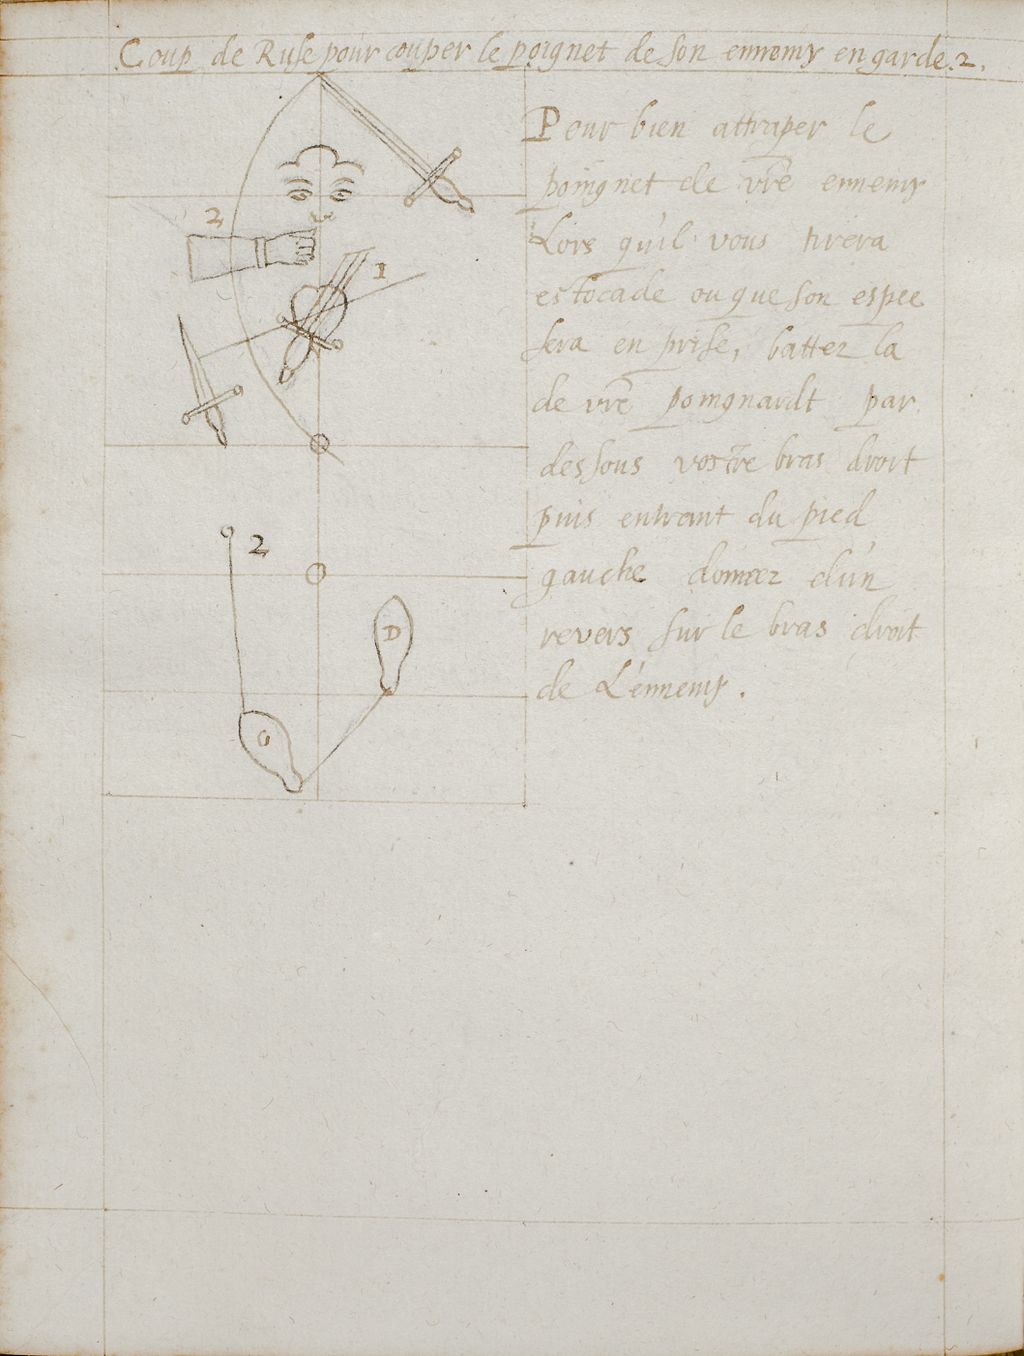 Coup de Ruse pour couper le poignet de son ennemy en garde. 2.
Pour bien attraper le
poingnet de vre ennemy
Lors qu'il vous tirera
estocade ou que son espee
sera en prise, battez la
de vre poingnardt par
dessous vostre bras droit
puis entrant du pied
gauche donnez d'un
revers sur le bras droit
de L'ennemy.
2
1
2
D
G